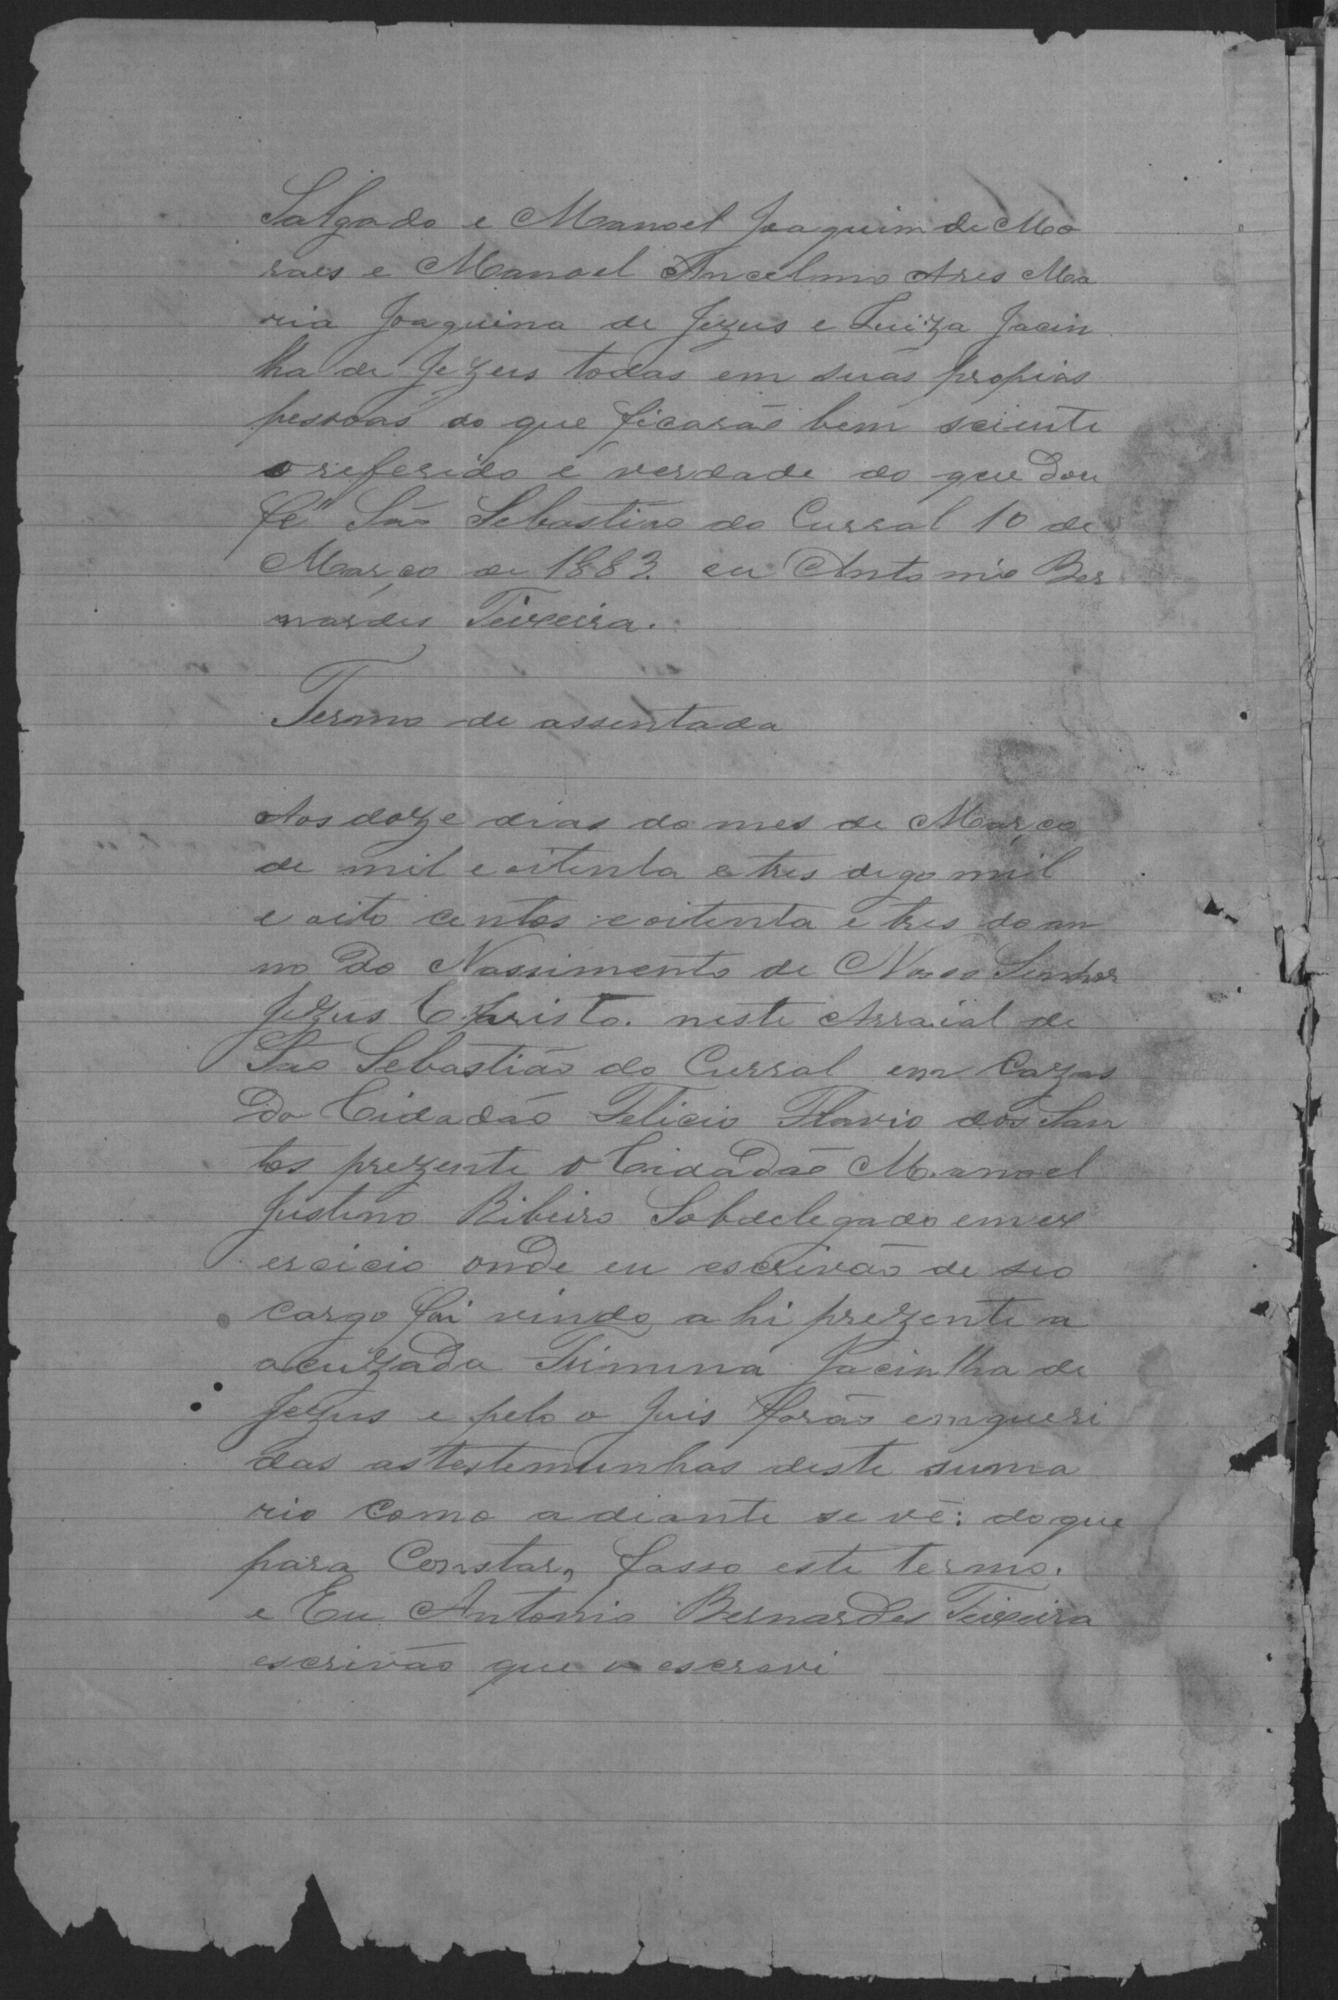 Salgado e Manoel Joaquim de Mo
raes e Manoel Ancelmo Ares Ma
ria Joaquina de Jezus e Luiza Jacin
tha de Jezus todas em suas propias
pessoas do que ficarão bem sciente
o referido é verdade do que Dou
fé São Sebastião do Curral 10 de
Março de 1883. eu Antonio Ber
nardes Teixeira.
Termo de assentada
Aos doze dias do mes de Março
de mil e oitenta e tres digo mil
e oito centos e oitenta e tres do an
no Do Nassimento de Nosso Senhor
Jezus Christo. neste Arraial de
São Sebastião do Curral em Cazas
Do Cidadão Felicio Flavio dos San
tos prezente o Cidadão Manoel
Justino Ribeiro Sobdelegado em ex
ercicio onde eu escrivão de seo
cargo fui vindo, a hi prezente a
acuzada Jacintha de
Jezus e pelo o Juis forão emqueri
das as testemunhas deste suma
rio como adiante se vê: do que
para Constar, fasso este termo.
e Eu Antonio Bernardes Teixeira
escrivão que o escrevi